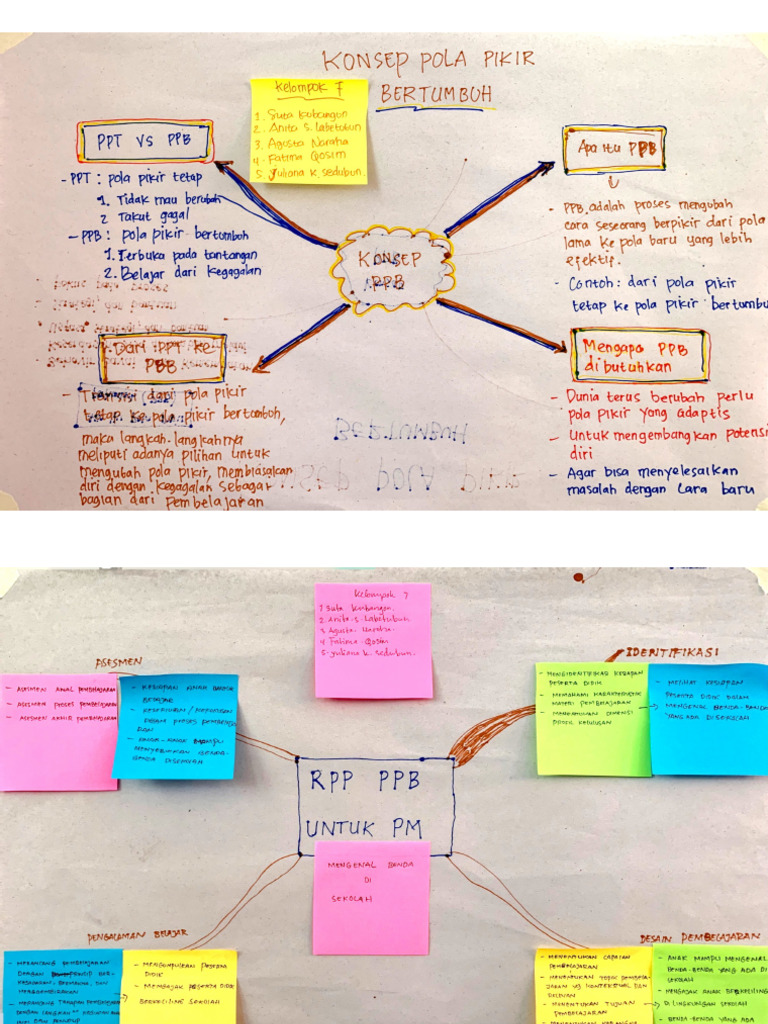 KONSEP POLA PIKIR
BERTUMBUH
Kelompok 7
1. Suta Kubangun
2. Anita S. Labetubun
3. Agusta Naraha
4. Fatima Qosim
5. Yuliana K. Sedubun.
PPT VS PPB
- PPT : pola pikir tetap
1. Tidak mau berubah
2. Takut gagal
- PPB : pola pikir bertumbuh
1. Terbuka pada tantangan
2. Belajar dari kegagalan
Apa itu PPB
- PPB adalah proses mengubah
cara seseorang berpikir dari pola
lama ke pola baru yang lebih
efektif.
- Contoh : dari pola pikir
tetap ke pola pikir bertumbu
KONSEP
PPB
Dari PPT ke
PBB
- Transisi dari pola pikir
tetap ke pola pikir bertumbuh,
maka langkah-langkahnya
meliputi adanya pilihan untuk
mengubah pola pikir, membiasakan
diri dengan kegagalan sebagai
bagian dari pembelajaran
Mengapa PPB
dibutuhkan
- Dunia terus berubah perlu
pola pikir yang adaptis
- Untuk mengembangkan potensi
diri
- Agar bisa menyelesaikan
masalah dengan cara baru
Kelompok 7
1 Suta Kubangun.
2. Anita-S-Labetubun
3 Agusta-Naraha.
4 Fatima-Qosim
5-Yuliana K. Sedubun.
ASESMEN
- ASESMEN AWAL PEMBELAJARAN
- ASESMEN PROSES PEMBELAJARAN
- ASESMEN AKHIR PEMBELAJARAN
- KESIAPAN UNTUK
BELAJAR
DALAM PROSES PEMBELAJA
RAN
- ANAK-ANAK MAMPU
MENYEBUTKAN BENDA-
BENDA DISEKOLAH
IDENTIFIKASI
- MENGIDENTIFIKASI KESIAPAN
PESERTA DIDIK
- MEMAHAMI KARAKTERISTIK
MATERI PEMBELAJARAN
- MENENTUKAN DIMENSI
PROFIL KELULUSAN
- MELIHAT KESIAPAN
PESERTA DIDIK DALAM
MENGENAL BENDA-BENDA
YANG ADA DI SEKOLAH
RPP PPB
UNTUK PM
MENGENAL BENDA
DI
SEKOLAH
PENGALAMAN BELAJAR
- MERANCANG PEMBELAJARAN
DENGAN PRINSIP BER-
KESADARAN, BERMAKNA, DAN
MENGGEMBIRAKAN
- MERANCANG TAHAPAN PEMBELAJARAN
- MENGUMPULKAN PESERTA
DIDIK
- MENGAJAK PESERTA DIDIK
BERKELILING SEKOLAH
DESAIN PEMBELAJARAN
- MENENTUKAN CAPAIAN
PEMBELAJARAN
- MENENTUKAN TOPIK PEMBELA-
JARAN YG KONTEKSTUAL DAN
RELEVAN
- MENENTUKAN TUJUAN
PEMBELAJARAN
- MENENTUKAN KERANGKA
- ANAK MAMPU MENGENAL
BENDA-BENDA YANG ADA DI
SEKOLAH
- MENGAJAK ANAK BERKELILING
DI LINGKUNGAN SEKOLAH
- BENDA-BENDA YANG ADA